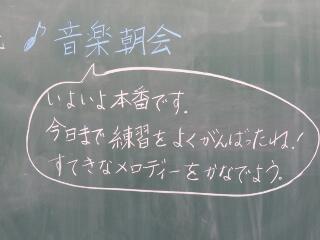 ♪音楽朝会
いよいよ本番です.
今日まで練習をよくがんばったね!
すてきなメロディーをかなでよう。